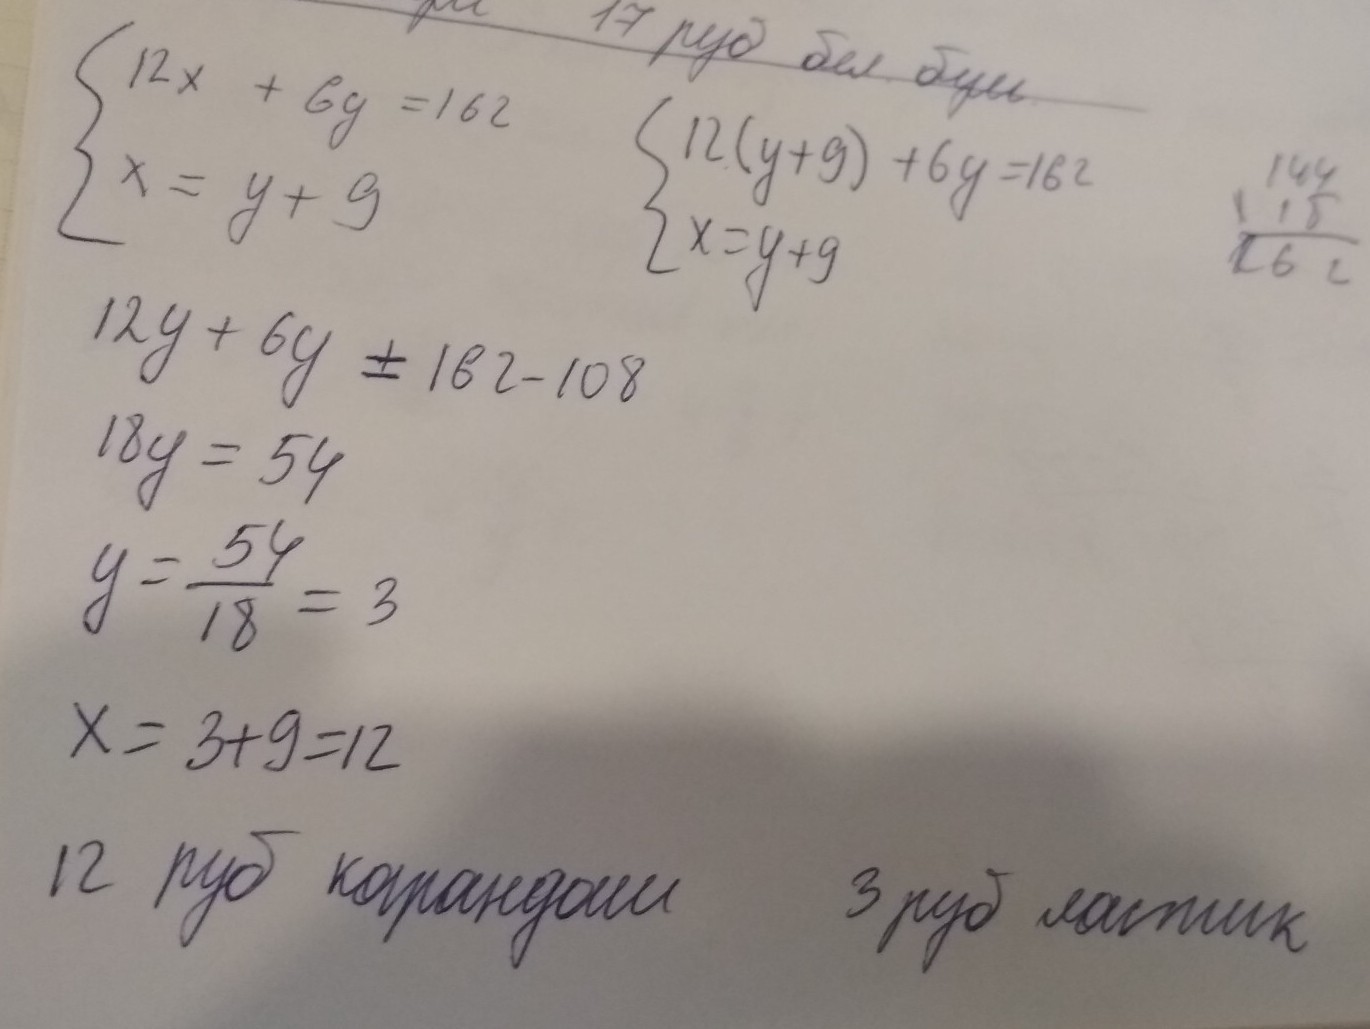 17 руб бел бум
12x + 6y = 162
x = y + 9
12(y+9) + 6y = 162
x = y+9
144
18
162
12y + 6y = 162 - 108
18y = 54
y = 54/18 = 3
x = 3+9=12
12 руб карандаш
3 руб ластик